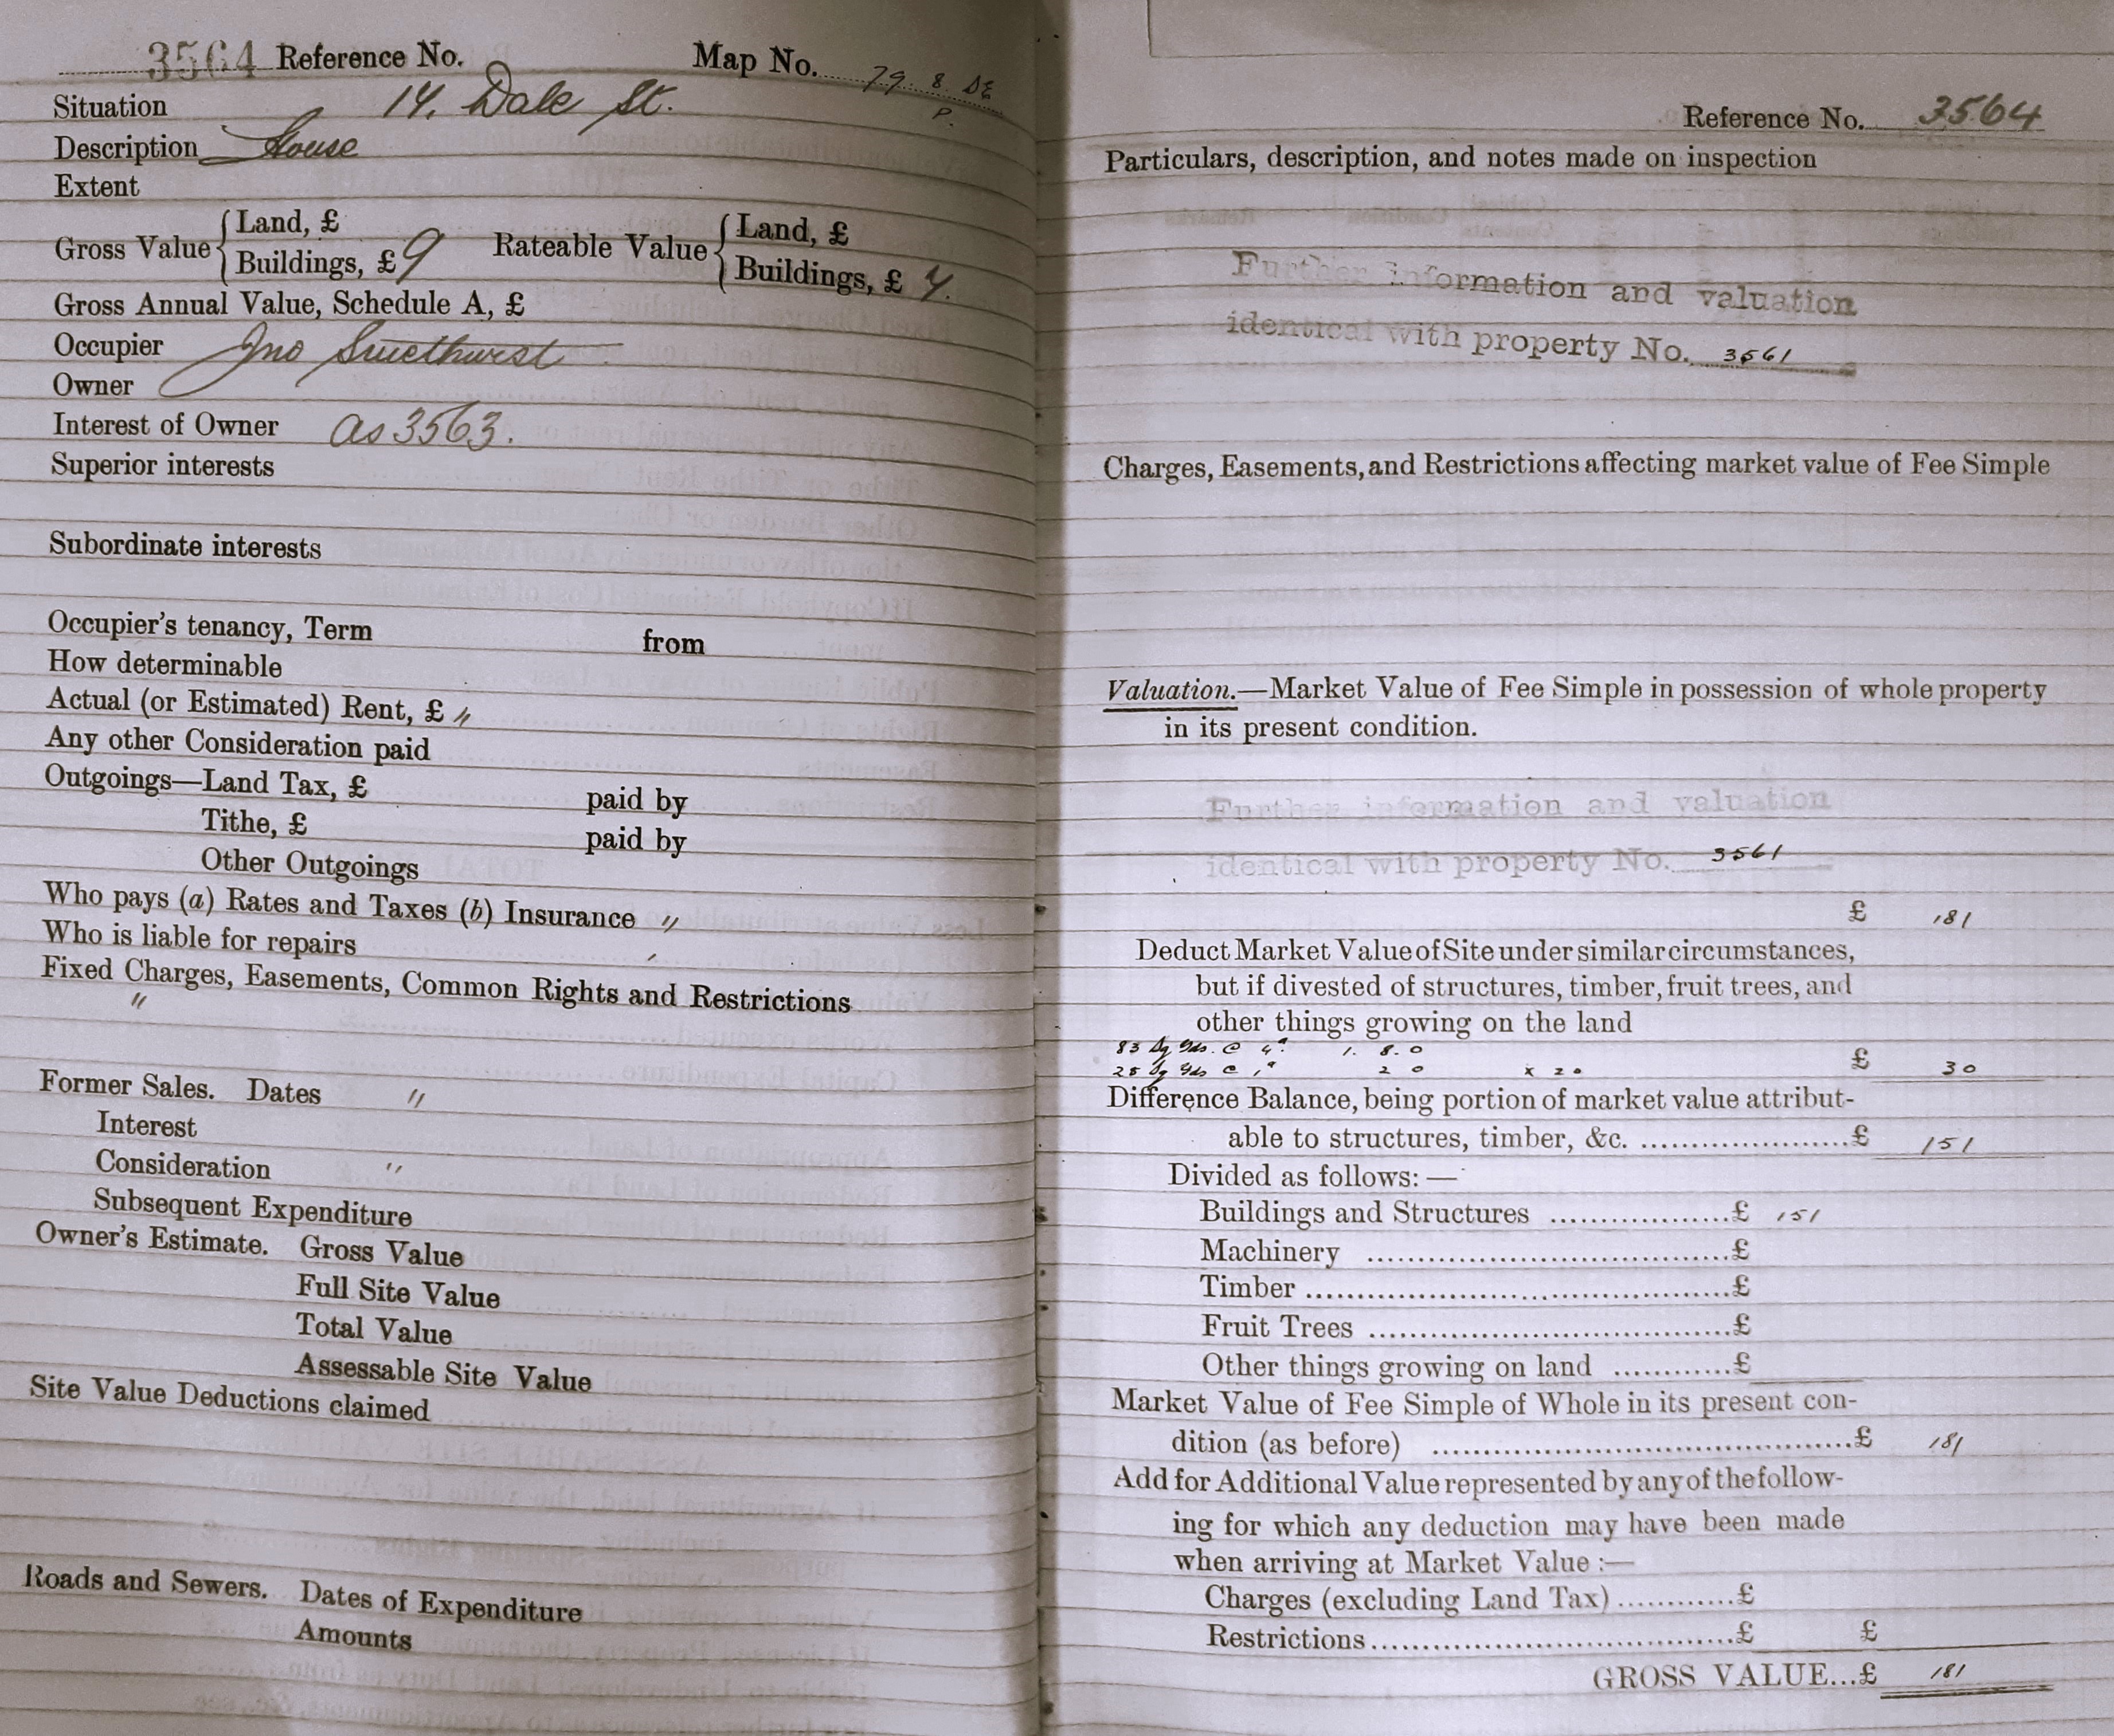 3564 Reference No. Map No. 79. 8. DE
P.
Situation 14, Dale St.
Description House
Extent
Gross Value { Land, £ Rateable Value { Land, £
Buildings, £ 9 Buildings, £ 7.
Gross Annual Value, Schedule A, £
Occupier Jno Smethurst
Owner
Interest of Owner as 3563.
Superior interests
Subordinate interests
Occupier's tenancy, Term from
How determinable
Actual (or Estimated) Rent, £ "
Any other Consideration paid
Outgoings—Land Tax, £ paid by
Tithe, £ paid by
Other Outgoings
Who pays (a) Rates and Taxes (b) Insurance "
Who is liable for repairs
Fixed Charges, Easements, Common Rights and Restrictions
"
Former Sales. Dates "
Interest
Consideration "
Subsequent Expenditure
Owner's Estimate. Gross Value
Full Site Value
Total Value
Assessable Site Value
Site Value Deductions claimed
Roads and Sewers. Dates of Expenditure
Amounts
Reference No. 3564
Particulars, description, and notes made on inspection
Further information and valuation
identical with property No. 3561
Charges, Easements, and Restrictions affecting market value of Fee Simple
Valuation.—Market Value of Fee Simple in possession of whole property
in its present condition.
Further information and valuation
identical with property No. 3561
£ 181
Deduct Market Value of Site under similar circumstances,
but if divested of structures, timber, fruit trees, and
other things growing on the land
83 Sq Yds. @ 4d. 1. 8. 0
25 Sq Yds @ 1d 2 0 x 20 £ 30
Difference Balance, being portion of market value attribut-
able to structures, timber, &c. ....................£ 151
Divided as follows:—
Buildings and Structures ..................£ 151
Machinery ....................................£
Timber ..........................................£
Fruit Trees ....................................£
Other things growing on land ............£
Market Value of Fee Simple of Whole in its present con-
dition (as before) ..........................................£ 181
Add for Additional Value represented by any of the follow-
ing for which any deduction may have been made
when arriving at Market Value :—
Charges (excluding Land Tax) ............£
Restrictions ....................................£ £
GROSS VALUE...£ 181